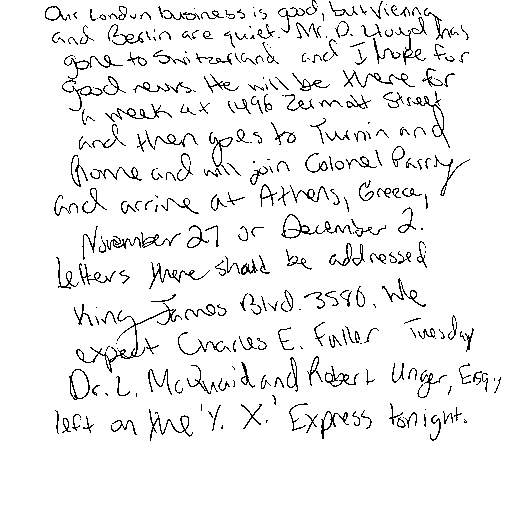 Our London business is good, but Vienna
and Berlin are quiet. Mr. D. Lloyd has
gone to Switzerland and I hope for
good news. He will be there for
a week at 1496 Zermott Street
and then goes to Turnin and
Rome and will join Colonel Parry
and arrive at Athens, Greece,
November 27 or December 2.
Letters there should be addressed
King James Blvd. 3580. We
expect Charles E. Fuller Tuesday
Dr. L. McQuaid and Robert Unger, Esq.,
left on the 'Y. X.' Express tonight.